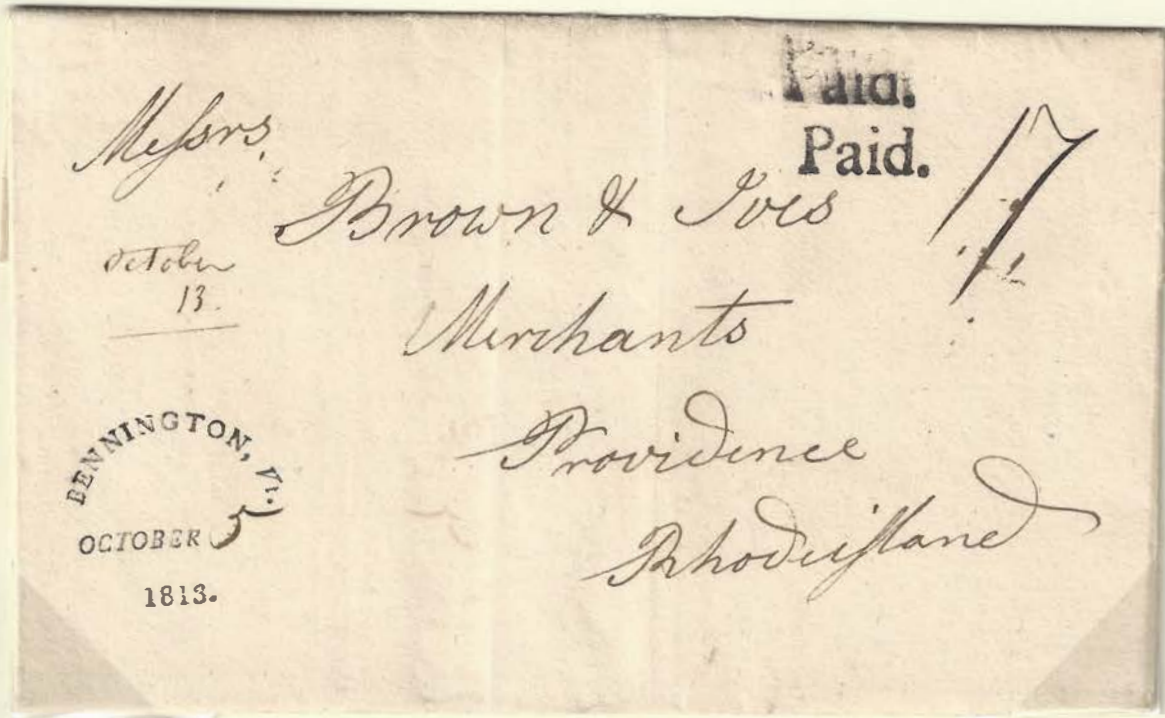 Paid.
Paid.
17
Meſsrs
Brown & Ives
October
13.
Merchants
Providence
Rhodeiſland
BENNINGTON, Vt.
OCTOBER 5
1813.